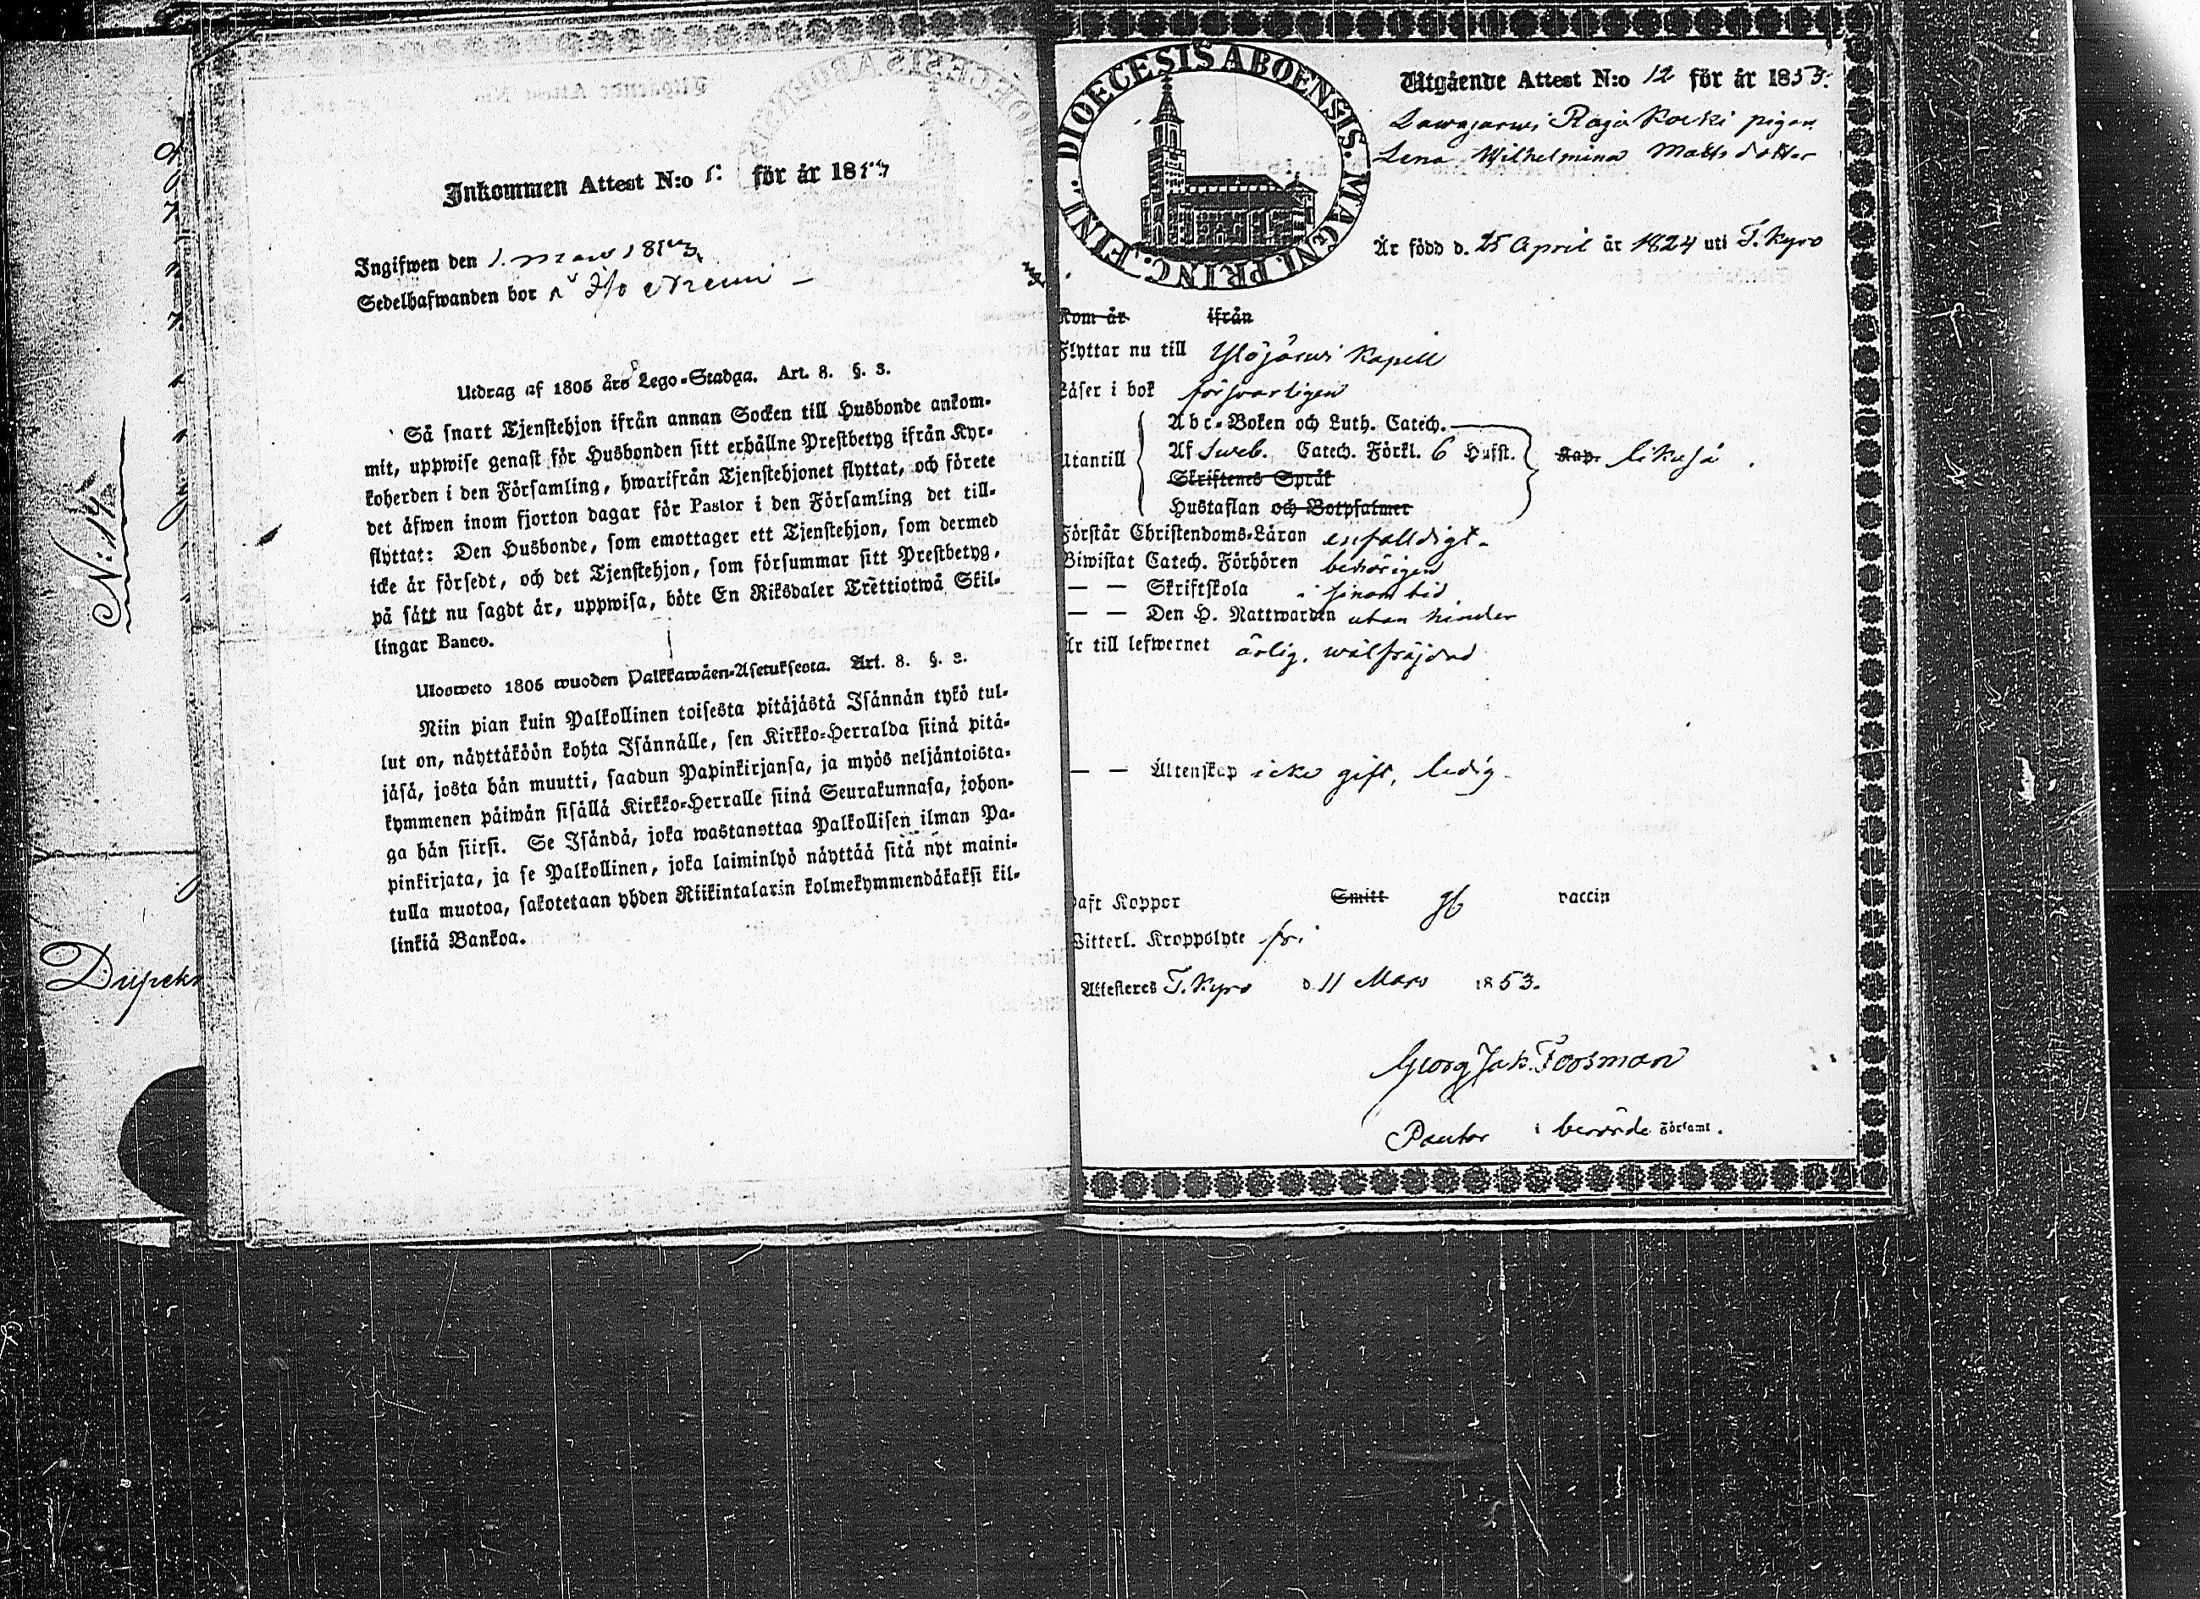 N:14
Inkommen Attest N:o 5. för år 1853
Ingifwen den 1. mars 1853
Sedelhafwanden bor
Utdrag af 1805 års Lego-Stadga. Art. 8. §. 3.
Så snart Tjenstehjon ifrån annan Socken till Husbonde ankom-
mit, uppwise genast för Husbonden sitt erhållne Prestbetyg ifrån Kyr-
koherden i den Församling, hwarifrån Tjenstehjonet flyttat, och förete
det äfwen inom fjorton dagar för Pastor i den Församling det till-
flyttat: Den Husbonde, som emottager ett Tjenstehjon, som dermed
icke är försedt, och det Tjenstehjon, som försummar sitt Prestbetyg,
på sätt nu sagdt är, uppwisa, böte En Riksdaler Trettiotwå Skil-
lingar Banco.
Ulosweto 1805 wuoden Palkkawäen-Asetuksesta. Art. 8. §. 3.
Niin pian kuin Palkollinen toisesta pitäjästä Isännän tykö tul-
lut on, näyttäköön kohta Isännälle, sen Kirkko-Herralda siinä pitä-
jäsä, josta hän muutti, saadun Papinkirjansa, ja myös neljäntoista-
kymmenen päiwän sisällä Kirkko-Herralle siinä Seurakunnasa, johon-
ga hän siirsi. Se Isändä, joka wastanottaa Palkollisen ilman Pa-
pinkirjata, ja se Palkollinen, joka laiminlyö näyttää sitä nyt maini-
tulla muotoa, sakotetaan yhden Riikintalarin kolmekymmendäkaksi kil-
linkiä Bankoa.
DIOECESIS ABOENSIS. MAGNI. PRINC. FINL.
Utgående Attest N:o 12 för år 1853.
Lawajarwi Raja Koski pigan
Lena Wilhelmina Mattsdotter
Är född d. 25 April år 1824 uti T. Kyro
Kom år ifrån
Flyttar nu till Ylöjärwi Kapell
Läser i bok försvarligen
Abc-Boken och Luth. Catech.
Utantill Af Sweb. Catech. Förkl. 6 Hufst. Kap. likaså.
Skriftenes Språk
Hustaflan och Botpsalmer
Förstår Christendoms-Läran enfalldigt.
Biwistat Catech. Förhören behörigen
— — Skriftskola i sinom tid
— — Den H. Nattwarden utan hinder
Är till lefwernet ärlig, wälfräjdad
— — Äktenskap icke gift, ledig.
Haft Koppor Smitt vaccin
Witterl. Kroppslyte fri
Attesteres T. Kyro d 11 Mars 1853.
Georg Jak. Forsman
Pastor i berörde Församl.